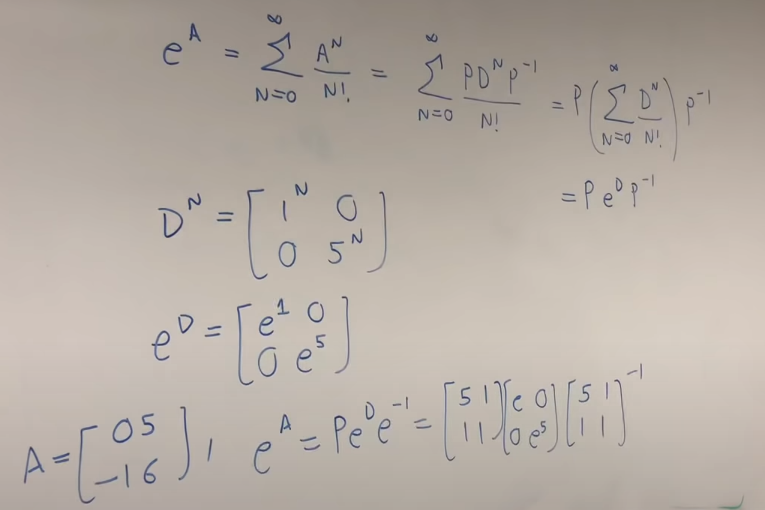 e^A = ∑_{N=0}^{∞} A^N/N! = ∑_{N=0}^{∞} PD^N P^{-1}/N! = P(∑_{N=0}^{∞} D^N/N!) P^{-1}
= P e^D P^{-1}
D^N = [1^N 0; 0 5^N]
e^D = [e^1 0; 0 e^5]
A = [0 5; -1 6], e^A = Pe^D e^{-1} = [5 1; 1 1][e 0; 0 e^5][5 1; 1 1]^{-1}